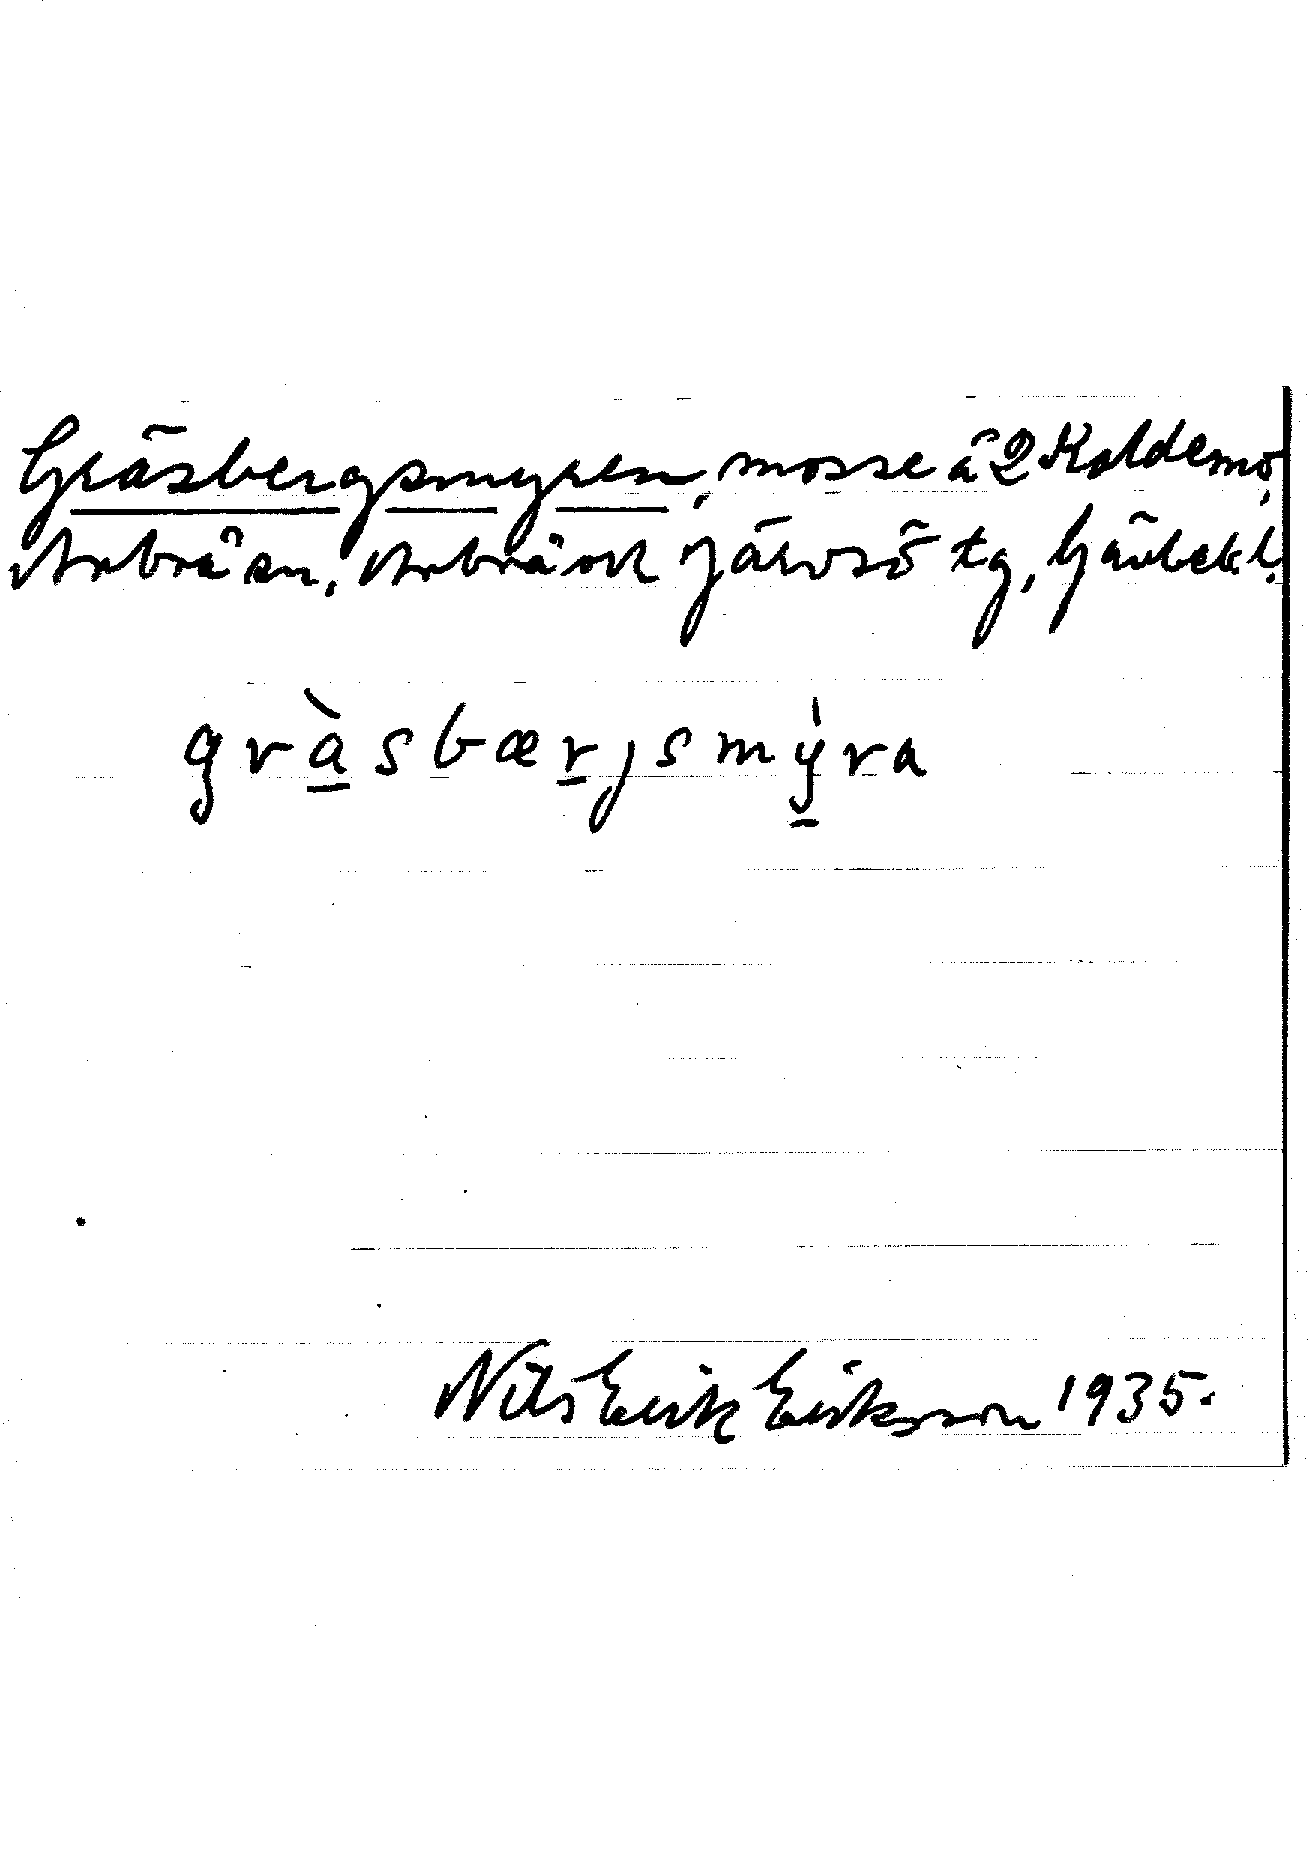 Gräsbergsmyren, mosse å 2 Koldemo,
Arbrå sn, Arbrå och Järvsö tg, Gävlebl. l.
gràsbærjsmýra
Nils Erik Eriksson 1935.